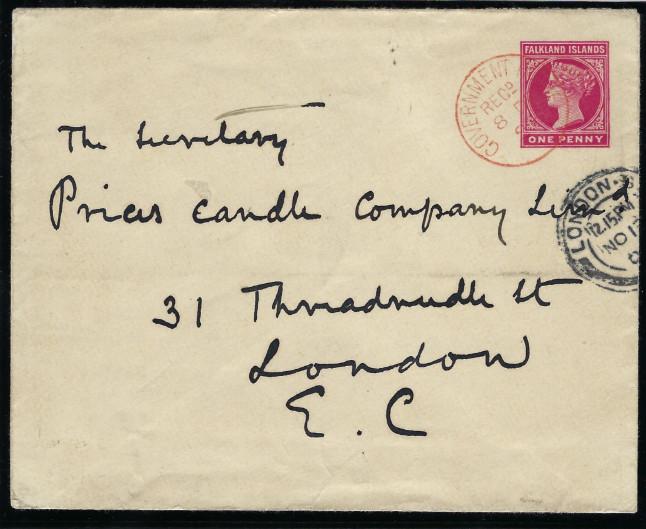 FALKLAND ISLANDS
ONE PENNY
GOVERNMENT
RECD
8
LONDON
12.15PM
NO 1
The Secretary
Prices Candle Company
31 Threadneedle St
London
E. C